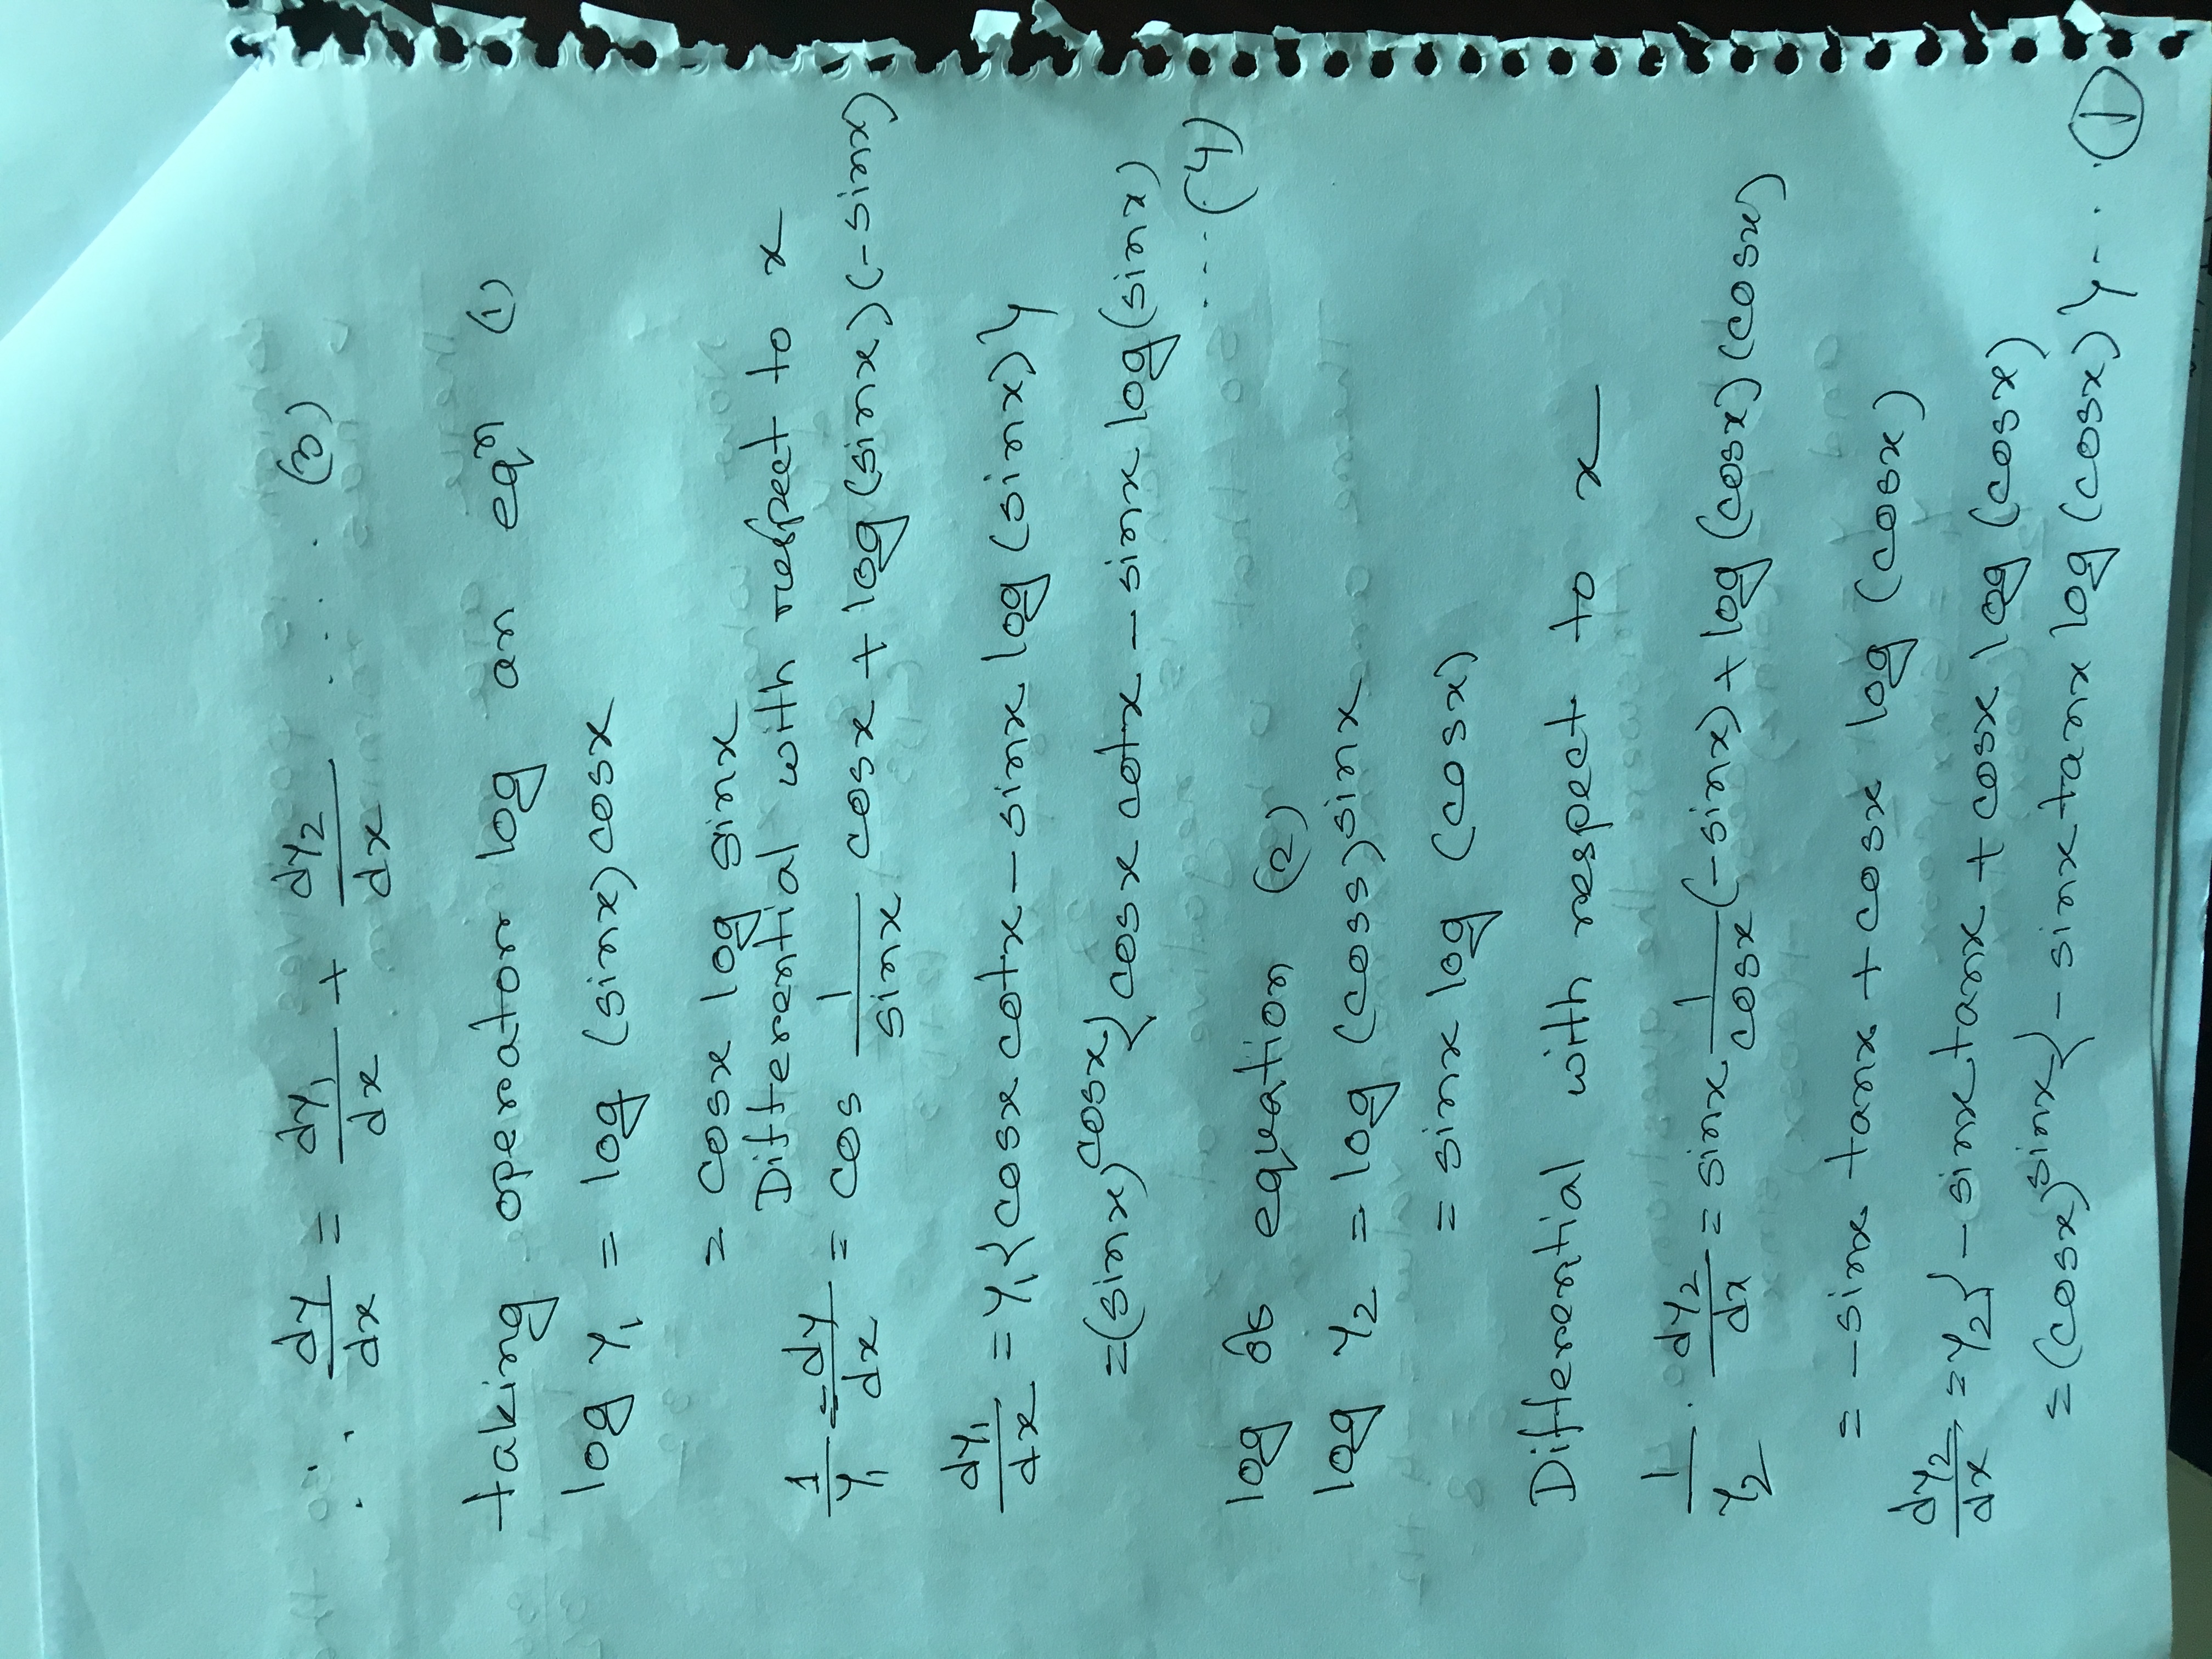 ∴ dy/dx = dy₁/dx + dy₂/dx ..... (3)
taking operator log an eqⁿ (1)
log y₁ = log (sinx) cosx
= cosx log sinx
Differential with respect to x
1/y₁ = dy/dx = cos 1/sinx cosx + log (sinx) (-sinx)
dy₁/dx = y₁{cosx cotx - sinx log (sinx)}
= (sinx)^cosx { cosx cotx - sinx log (sinx)
....(4)
log of equation (2)
log y₂ = log (coss)^sinx
= sinx log (cosx)
Differential with respect to x
1/y₂ . dy₂/dx = sinx 1/cosx (-sinx) + log (cosx) (cosx)
= -sinx tanx + cosx log (cosx)
dy₂/dx = y₂{ - sinx tanx + cosx log (cosx)
= (cosx)^sinx { - sinx tanx log (cosx) } ... ①